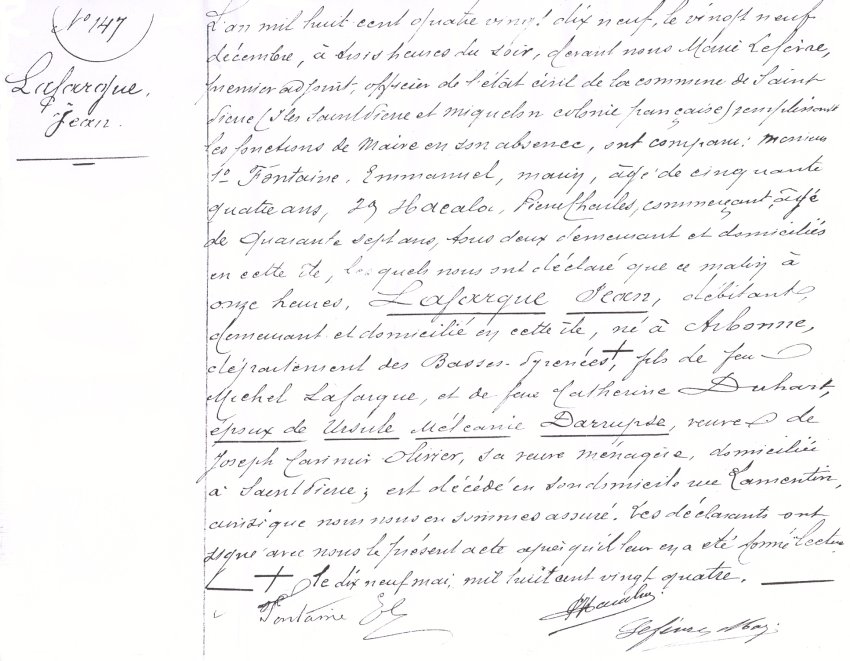 N° 147
Lafargue,
Jean.
L'an mil huit cent quatre vingt dix neuf, le vingt neuf
décembre, à trois heures du soir, devant nous Marie Lefèvre,
premier adjoint, officier de l'état civil de la commune de Saint
Pierre (Iles Saint Pierre et Miquelon colonie française) remplissant
les fonctions de Maire en son absence, ont comparu: messieurs
1° Fontaine, Emmanuel, marin, âgé de cinquante
quatre ans, 2° Hacala, Pierre Charles, commerçant, âgé
de quarante sept ans, tous deux demeurant et domiciliés
en cette île, lesquels nous ont déclaré que ce matin à
onze heures, Lafargue Jean, débitant,
demeurant et domicilié en cette île, né à Arbonne,
département des Basses-Pyrénées +, fils de feu
Michel Lafargue, et de feue Catherine Duhart,
époux de Ursule Méleanie Darrupse, veuve de
Joseph Casimir Olivier, sa veuve ménagère, domiciliée
à Saint Pierre; est décédé en son domicile rue Lamentin,
ainsi que nous nous en sommes assuré. Les déclarants ont
signé avec nous le présent acte après qu'il leur en a été donné lecture
+ le dix neuf mai, mil huit cent vingt quatre.
Fontaine E
Hacala
Lefèvre